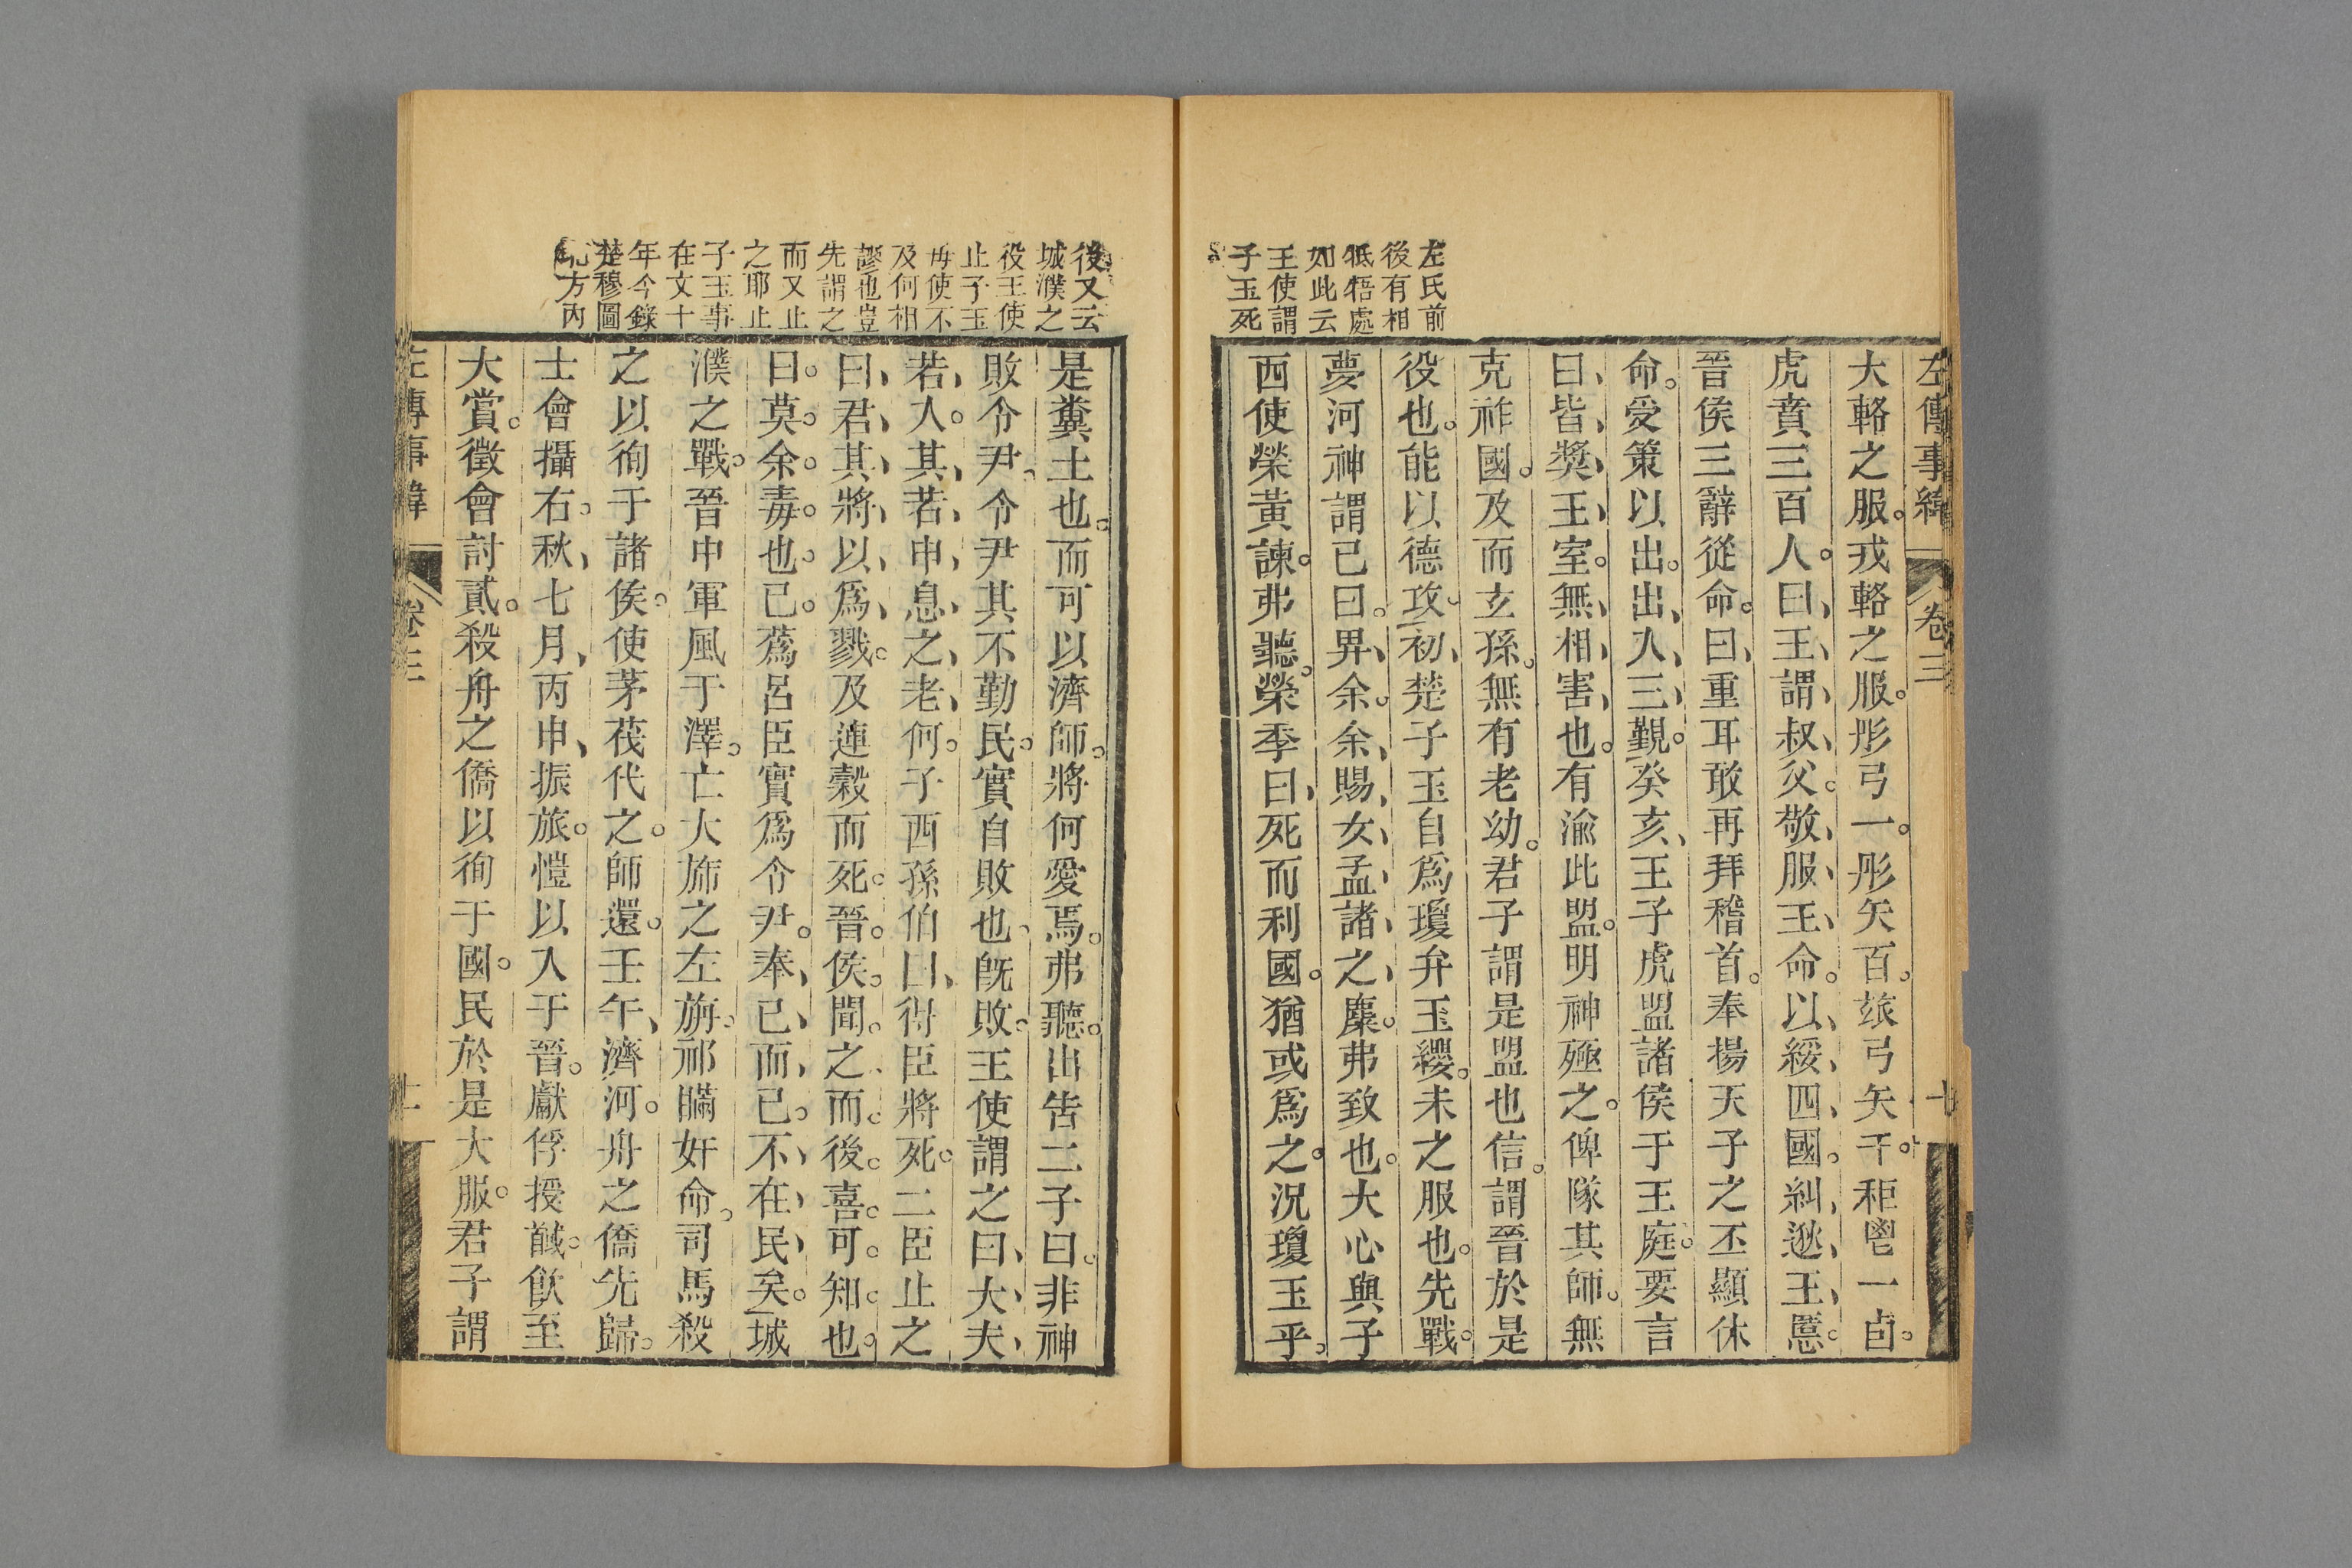 左傳事緯
卷三
大輅之服。戎輅之服。彤弓一。彤矢百。玈弓矢千。秬鬯一卣。
虎賁三百人。曰、王謂叔父。敬服王命。以綏四國。糾逖王慝。
晉侯三辭從命。曰、重耳敢再拜稽首。奉揚天子之丕顯休
命。受策以出。出入三覲。癸亥、王子虎盟諸侯于王庭。要言
曰、皆奬王室。無相害也。有渝此盟。明神殛之。俾隊其師。無
克祚國。及而玄孫。無有老幼。君子謂是盟也信。謂晉於是
役也。能以德攻。初、楚子玉自爲瓊弁玉纓。未之服也。先戰。
夢河神謂已曰。畀余。余賜女孟諸之麋。弗致也。大心與子
西使榮黃諫。弗聽。榮季曰、死而利國。猶或爲之。況瓊玉乎。
左氏前
後有相
牴牾處
如此云
王使謂
子玉死
是糞土也。而可以濟師。將何愛焉。弗聽。出告二子曰。非神
敗令尹。令尹其不勤民。實自敗也。旣敗。王使謂之曰、大夫
若入。其若申息之老何。子西孫伯曰、得臣將死。二臣止之
曰、君其將以爲戮。及連穀而死。晉侯聞之而後喜可知也。
曰。莫余毒也已。蔿呂臣實爲令尹。奉己而已。不在民矣。城
濮之戰。晉中軍風于澤。亡大旆之左旃。祁瞞奸命。司馬殺
之以徇于諸侯。使茅茷代之。師還。壬午、濟河。舟之僑先歸。
士會攝右。秋、七月、丙申、振旅。愷以入于晉。獻俘授馘。飲至
大賞。徵會討貳。殺舟之僑以徇于國。民於是大服。君子謂
後又云
城濮之
役王使
止子玉
毋使不
及何相
謬也豈
先謂之
而又止
之耶止
子玉事
在文十
年今錄
楚穆圖
北方內
左傳事緯
卷三